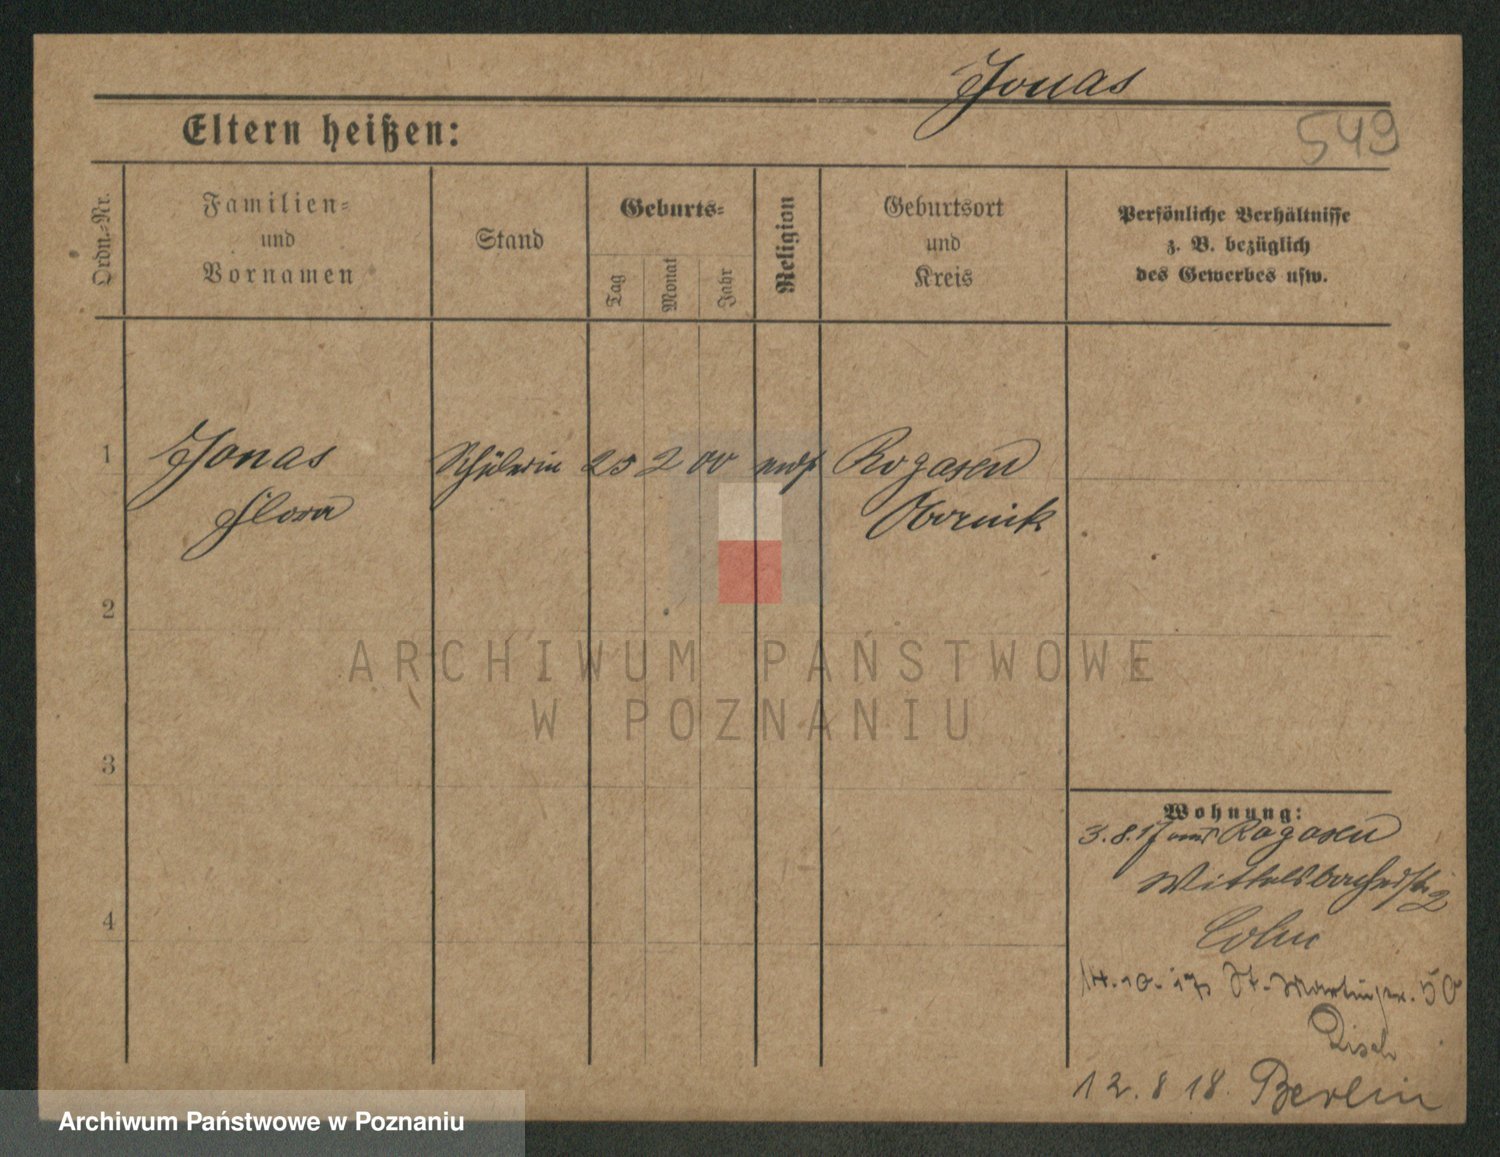 Jonas
549
Eltern heißen:
Ordn.-Nr.
Familien-
und
Vornamen
Stand
Geburts-
Tag
Monat
Jahr
Religion
Geburtsort
und
Kreis
Persönliche Verhältnisse
z. B. bezüglich
des Gewerbes usw.
1
Jonas
Flora
Schülerin
25
2
00
mos
Rogasen
Obornik
2
3
4
Wohnung:
3.8.17 von Rogasen
Wittelsbacherstr. 2
Cohn
14.10.17 St. Martinstr. 50
12.8 18. Berlin
ARCHIWUM PAŃSTWOWE
W POZNANIU
Archiwum Państwowe w Poznaniu